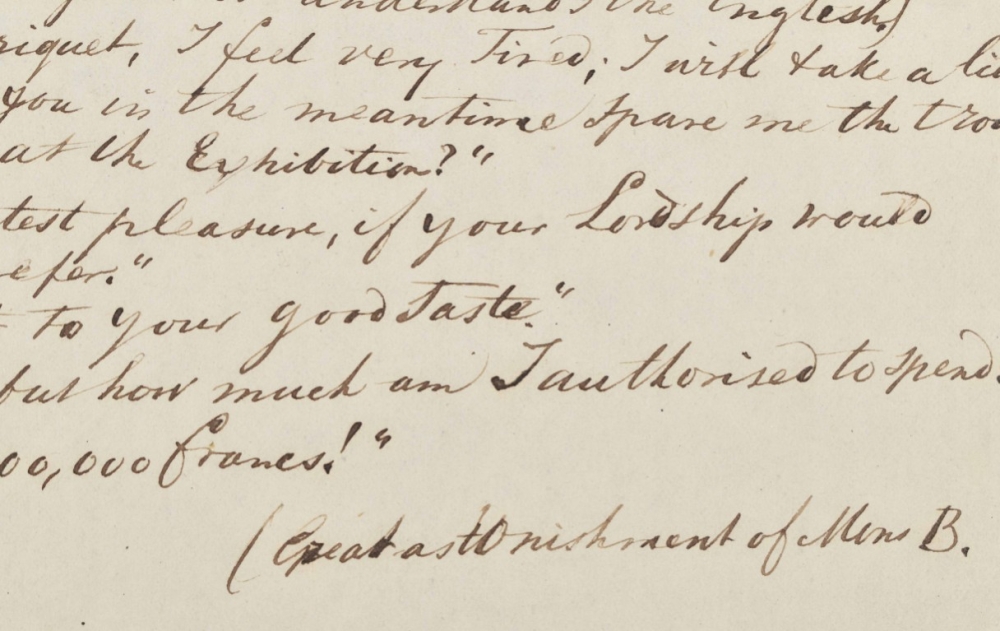 understands the English.)
riquet, I feel very Tired; I will take a li
you in the meantime spare me the trou
at the Exhibition?"
test pleasure, if your Lordship would
efer."
to your good Taste."
but how much am I authorised to spend.
00,000 francs!"
(Great astonishment of Mons B.